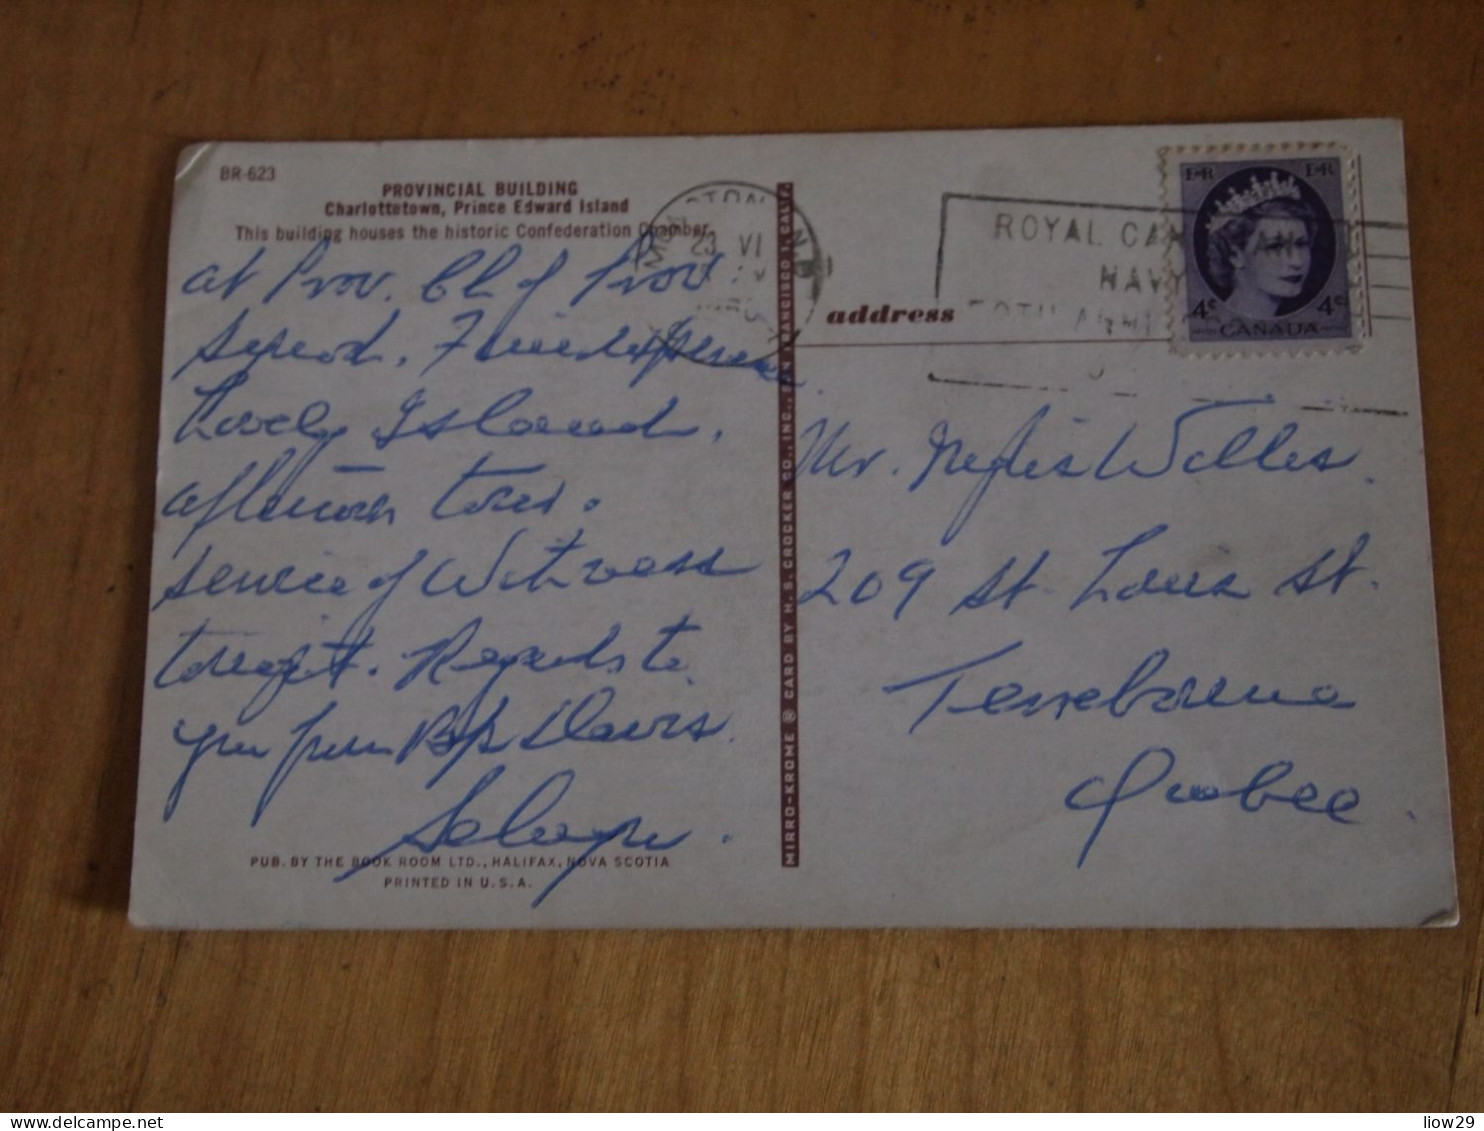 BR-623
PROVINCIAL BUILDING
Charlottetown, Prince Edward Island
This building houses the historic Confederation Chamber.
at Prov. Ch of Prov
Synod.
Lovely Island,
afternoon tour.
Service of Witness
tonight. Regards to
you from Bp Davis.
PUB. BY THE BOOK ROOM LTD., HALIFAX, NOVA SCOTIA
PRINTED IN U.S.A.
MIRRO-KROME ® CARD BY H. S. CROCKER CO., INC., SAN FRANCISCO 1, CALIF.
23 VI
ROYAL CAN
NAVY
E R E R
4¢ 4¢
CANADA
address
Mr. Willis.
209 St. Louis St.
Terrebonne
Quebec.
liow29